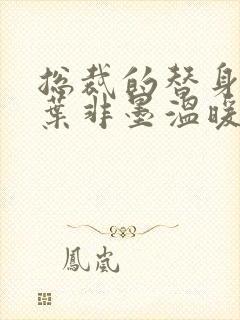 总裁的替身
葉非墨溫暖
鳳嵐